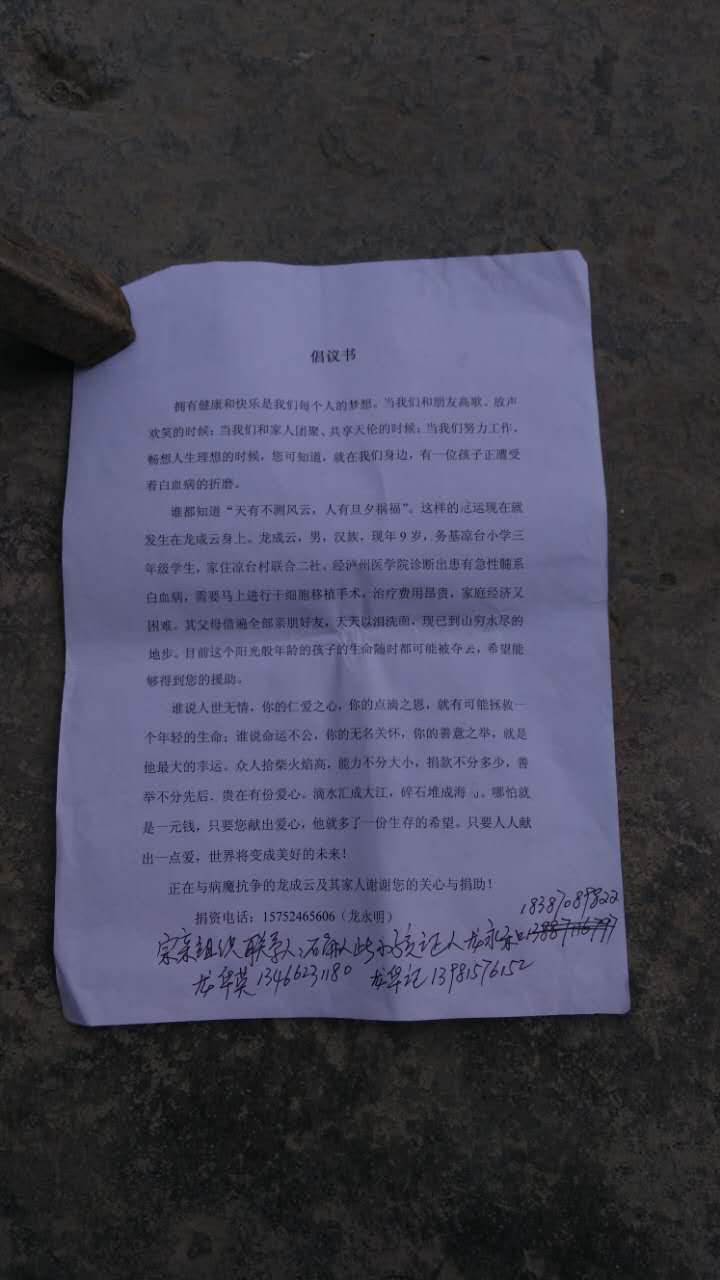 倡议书
拥有健康和快乐是我们每个人的梦想。当我们和朋友高歌、放声
欢笑的时候；当我们和家人团聚、共享天伦的时候；当我们努力工作，
畅想人生理想的时候，您可知道，就在我们身边，有一位孩子正遭受
着白血病的折磨。
谁都知道“天有不测风云，人有旦夕祸福”。这样的厄运现在就
发生在龙成云身上。龙成云，男，汉族，现年 9 岁，务基凉台小学三
年级学生，家住凉台村联合二社。经泸州医学院诊断出患有急性髓系
白血病，需要马上进行干细胞移植手术，治疗费用昂贵，家庭经济又
困难。其父母借遍全部亲朋好友，天天以泪洗面，现已到山穷水尽的
地步。目前这个阳光般年龄的孩子的生命随时都可能被夺云，希望能
够得到您的援助。
谁说人世无情，你的仁爱之心，你的点滴之恩，就有可能拯救一
个年轻的生命；谁说命运不公，你的无名关怀，你的善意之举，就是
他最大的幸运。众人拾柴火焰高，能力不分大小，捐款不分多少，善
举不分先后，贵在有份爱心。滴水汇成大江，碎石堆成海。哪怕就
是一元钱，只要您献出爱心，他就多了一份生存的希望。只要人人献
出一点爱，世界将变成美好的未来！
正在与病魔抗争的龙成云及其家人谢谢您的关心与捐助！
捐资电话：15752465606（龙永明）
18387089822
宗亲组织联系人：石 此小孩证人龙永和
龙华英13466231180 龙华记13981576152